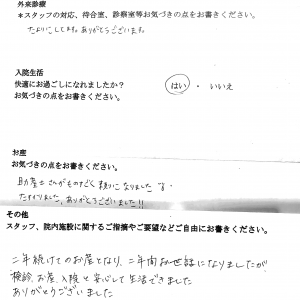 外来診療
＊スタッフの対応、待合室、診察室等お気づきの点をお書きください。
たよりにしてます。ありがとうございます。
入院生活
快適にお過ごしになれましたか？ はい ・ いいえ
お気づきの点をお書きください。
お産
お気づきの点をお書きください。
助産士さんがものすごく頼りになりました
たすかりました。ありがとうございました!!
その他
スタッフ、院内施設に関するご指摘やご要望などご自由にお書きください。
二年続けてのお産となり、二年間お世話になりましたが
検診、お産、入院と安心して生活できました
ありがとうございました